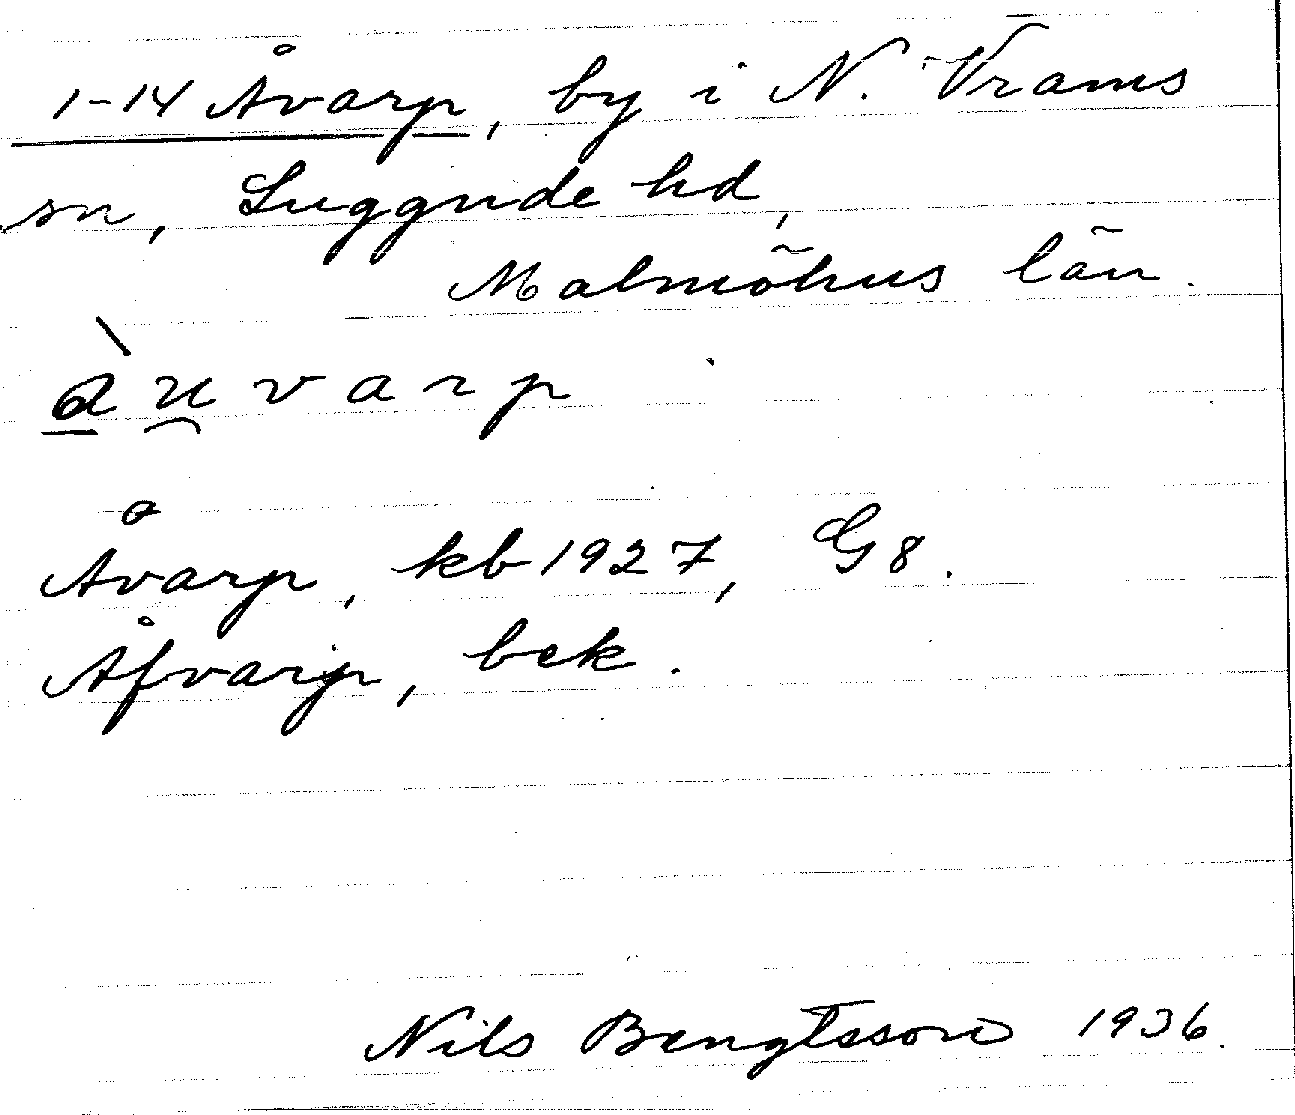 1-14 Åvarp, by i N. Vrams
sn, Luggude hd,
Malmöhus län.
àu̯varp
Åvarp, kb 1927, G8.
Åfvarp, bek.
Nils Bengtsson 1936.